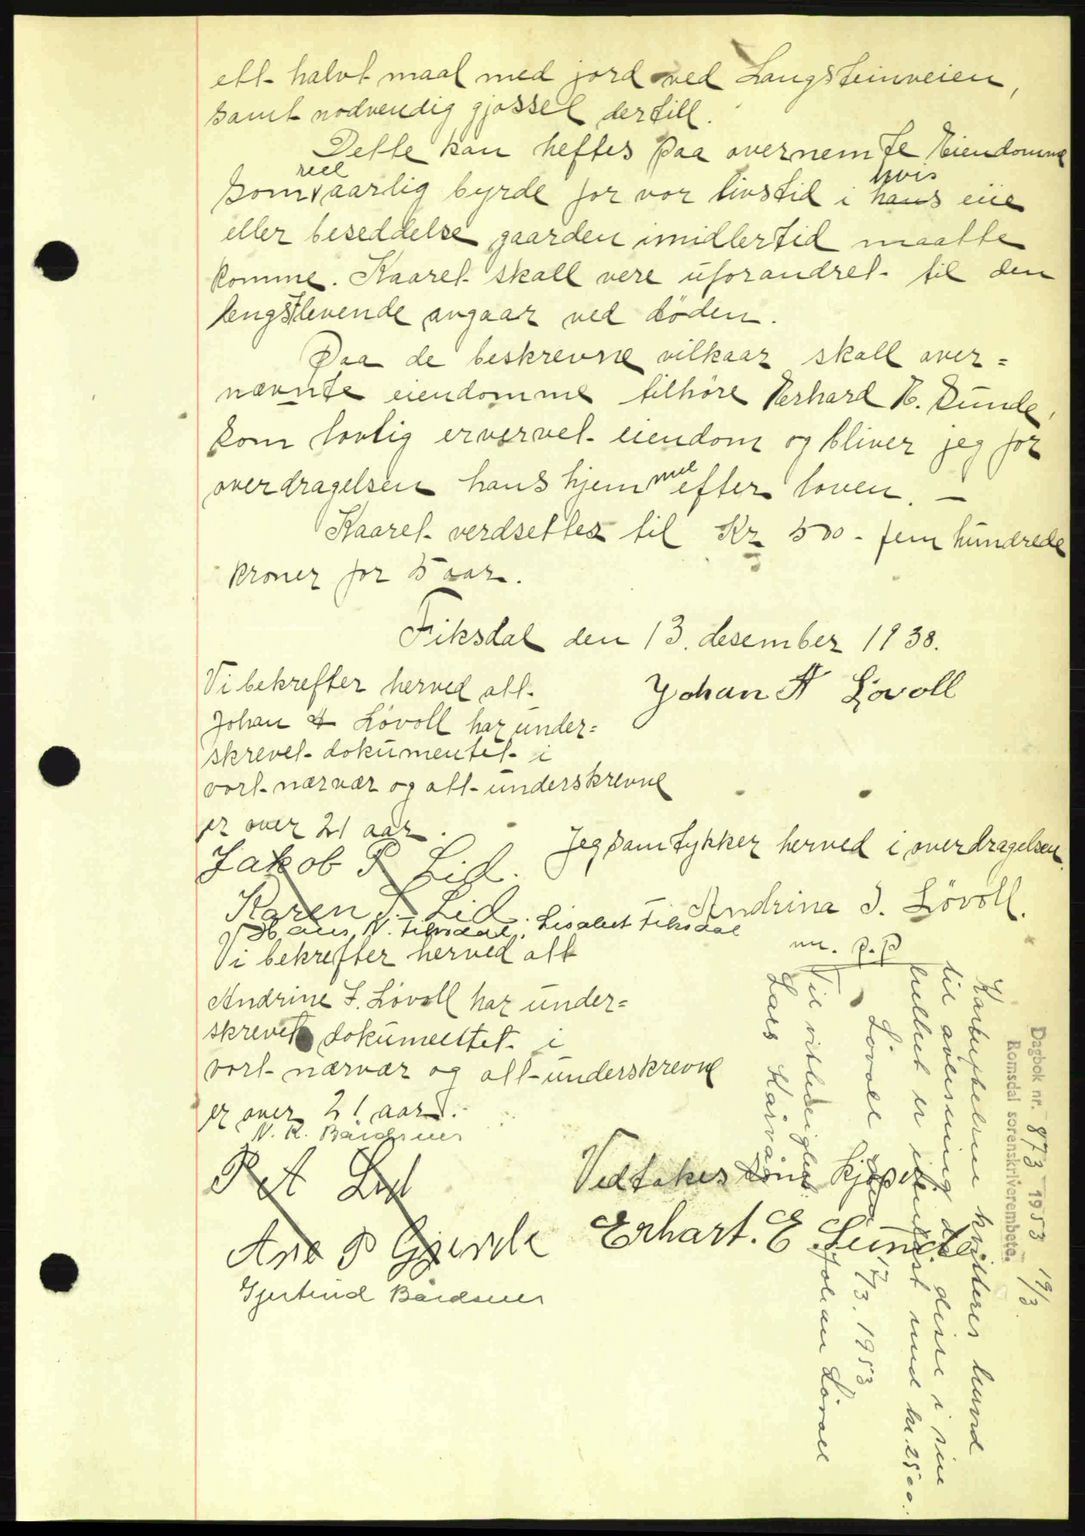 ett halvt maal med jord ved Langsteinveien,
samt nødvendig gjøssel dertill.
Dette kan heftes paa overnemte Eiendomme
som reel aarlig byrde for vor livstid i hans hvis eiie
eller beseddelse gaarden imidlertid maatte
komme. Kaaret skall vere uforandret til den
lengstlevende avgaar ved døden.
Paa de beskrevne vilkaar skall over=
nævnte eiendomme tilhøre Erhard E. Sunde,
som lovlig ervervet eiendom og bliver jeg for
overdragelsen hans hjemmel efter loven. —
Kaaret verdsettes til Kr 500 - fem hundrede
kroner for 5 aar.
Fiksdal den 13. desember 1938.
Johan A Løvoll
Vi bekrefter herved att
Johan A Løvoll har under=
skrevet dokumentet i
vort nærvær og att underskrevne
er over 21 aar.
Jakob P Lid.
Karen S. Lid.
Hans N. Fiksdal. Lisabet Fiksdal
Jeg samtykker herved i overdragelsen.
Andrina I. Løvoll.
m. p. p
Vi bekrefter herved att
Andrine I. Løvoll har under=
skrevet dokumentet i
vort nærvær og att underskrevne
er over 21 aar.
N. R. Baidsnes
P A Lid
Ane P Gjerde
Gjertrud Baidsnes
Vedtakes som kjøper
Erhart. E Sunde
Dagbok nr. 873 1953 19/3
Romsdal sorenskriverembete.
Kårbuytelsene kvitteres herved
til avlesning da disse i sin
helhet er innløst med kr. 2500.
Løvoll den 17/3. 1953
Johan Løvoll
Til vitterlighet:
Lars Kårvåg